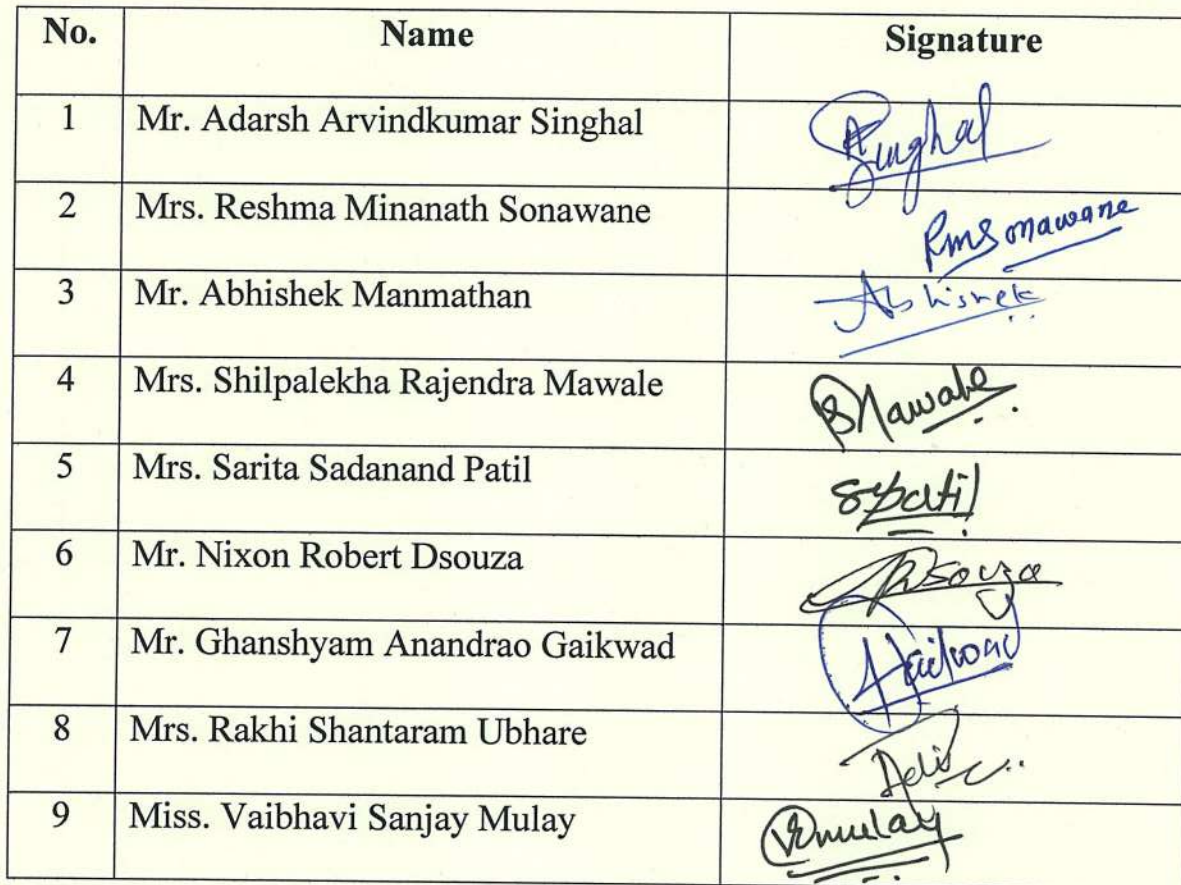 No. Name Signature
1 Mr. Adarsh Arvindkumar Singhal Singhal
2 Mrs. Reshma Minanath Sonawane RMSonawane
3 Mr. Abhishek Manmathan Abhishek
4 Mrs. Shilpalekha Rajendra Mawale SMawale
5 Mrs. Sarita Sadanand Patil SPatil
6 Mr. Nixon Robert Dsouza Dsouza
7 Mr. Ghanshyam Anandrao Gaikwad Gaikwad
8 Mrs. Rakhi Shantaram Ubhare
9 Miss. Vaibhavi Sanjay Mulay VSMulay